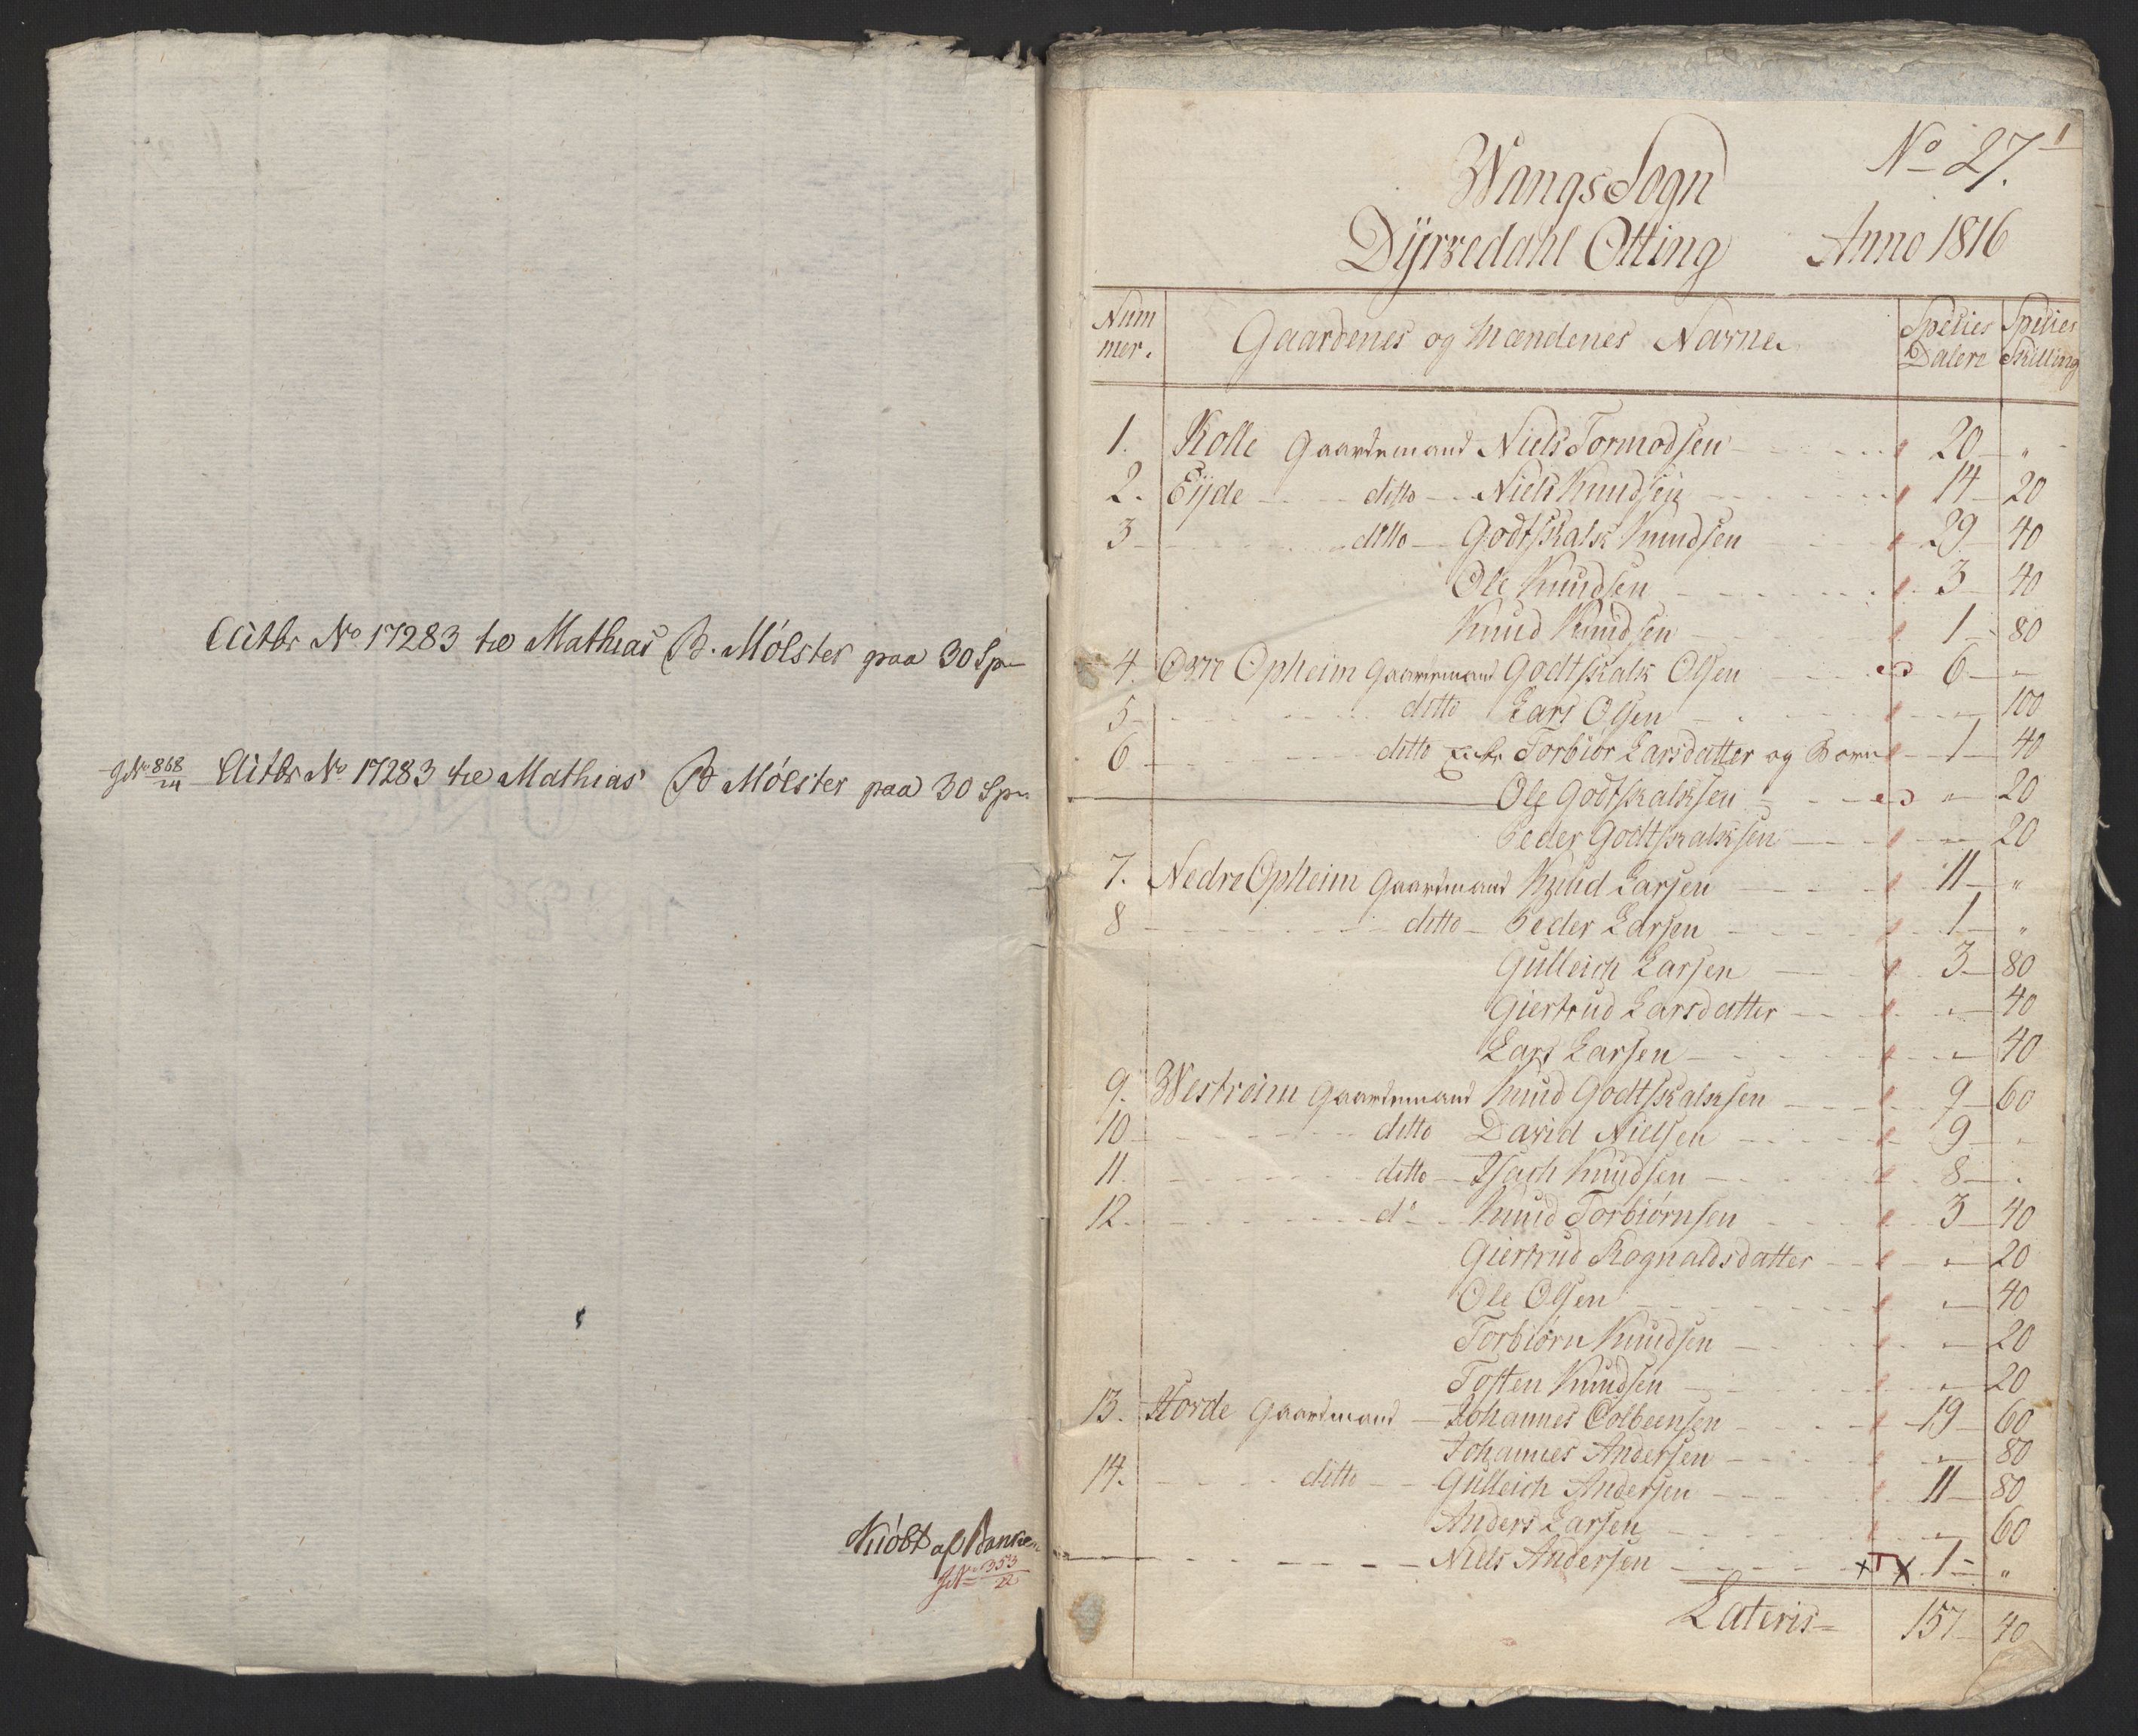 Actbr No 17283 til Mathias B. Mölster paa 30 Sp
gNo 868/24 Actbr No 17283 til Mathias B Mölster paa 30 Sp
Kiöbt af Banken
JNo 353/22
No 27. 1
Wangs Sogn
Dÿrvedahl Otting Anno 1816
Num mer. Gaardenes og Mændenes Navne Spesies Dalere Spesies Skilling
1. Rolle Gaardemand Niels Tormodsen 20 "
2. Eÿde ditto Niels Knudsen 14 20
3 ditto Godtskalk Knudsen 29 40
Ole Knudsen 3 40
Knud Knudsen 1 80
4. Ovre Opheim Gaardemand Godtskalk Olsen 6 "
5 ditto Lars Olsen " 100
6 ditto Enke Torbiör Larsdatter og Børn 1 40
Ole Godtskalksen " 20
Peder Godtskalksen " 20
7. Nedre Opheim Gaardmand Knud Larsen 11 "
8 ditto Peder Larsen 1 "
Gulleich Larsen 3 80
Giertrud Larsdatter " 40
Lars Larsen " 40
9. Westreim Gaardemand Knud Godtskalksen 9 60
10 ditto David Nielsen 9 "
11. ditto Isach Knudsen 8 "
12. do Knud Torbiörnsen 3 40
Giertrud Rognaldsdatter " 20
Ole Olsen " 40
Torbiörn Knudsen " 20
Tosten Knudsen " 20
13. Horde Gaardmand Johannes Colbeensen 19 60
Johannes Andersen " 80
14. ditto Gulleich Andersen 11 80
Anders Larsen " 60
Niels Andersen x T x 1 "
Lateris 157 40